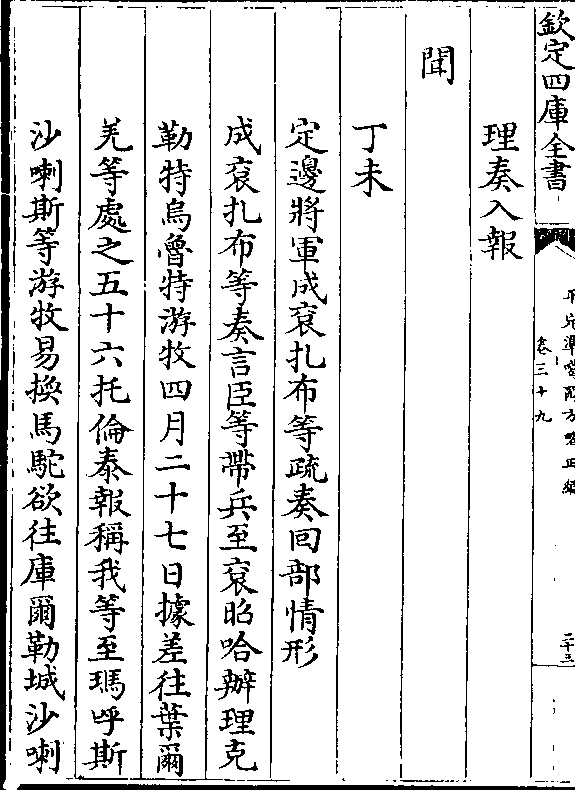 欽定四庫全書
平定準噶爾方畧正編
卷三十九
二十三
理奏入報
聞
丁未
定邊將軍成衮扎布等疏奏回部情形
成衮扎布等奏言臣等帶兵至衮昭哈辦理克
勒特烏魯特游牧四月二十七日據差往葉爾
羌等處之五十六托倫泰報稱我等至瑪呼斯
沙喇斯等游牧易換馬駝欲往庫爾勒城沙喇